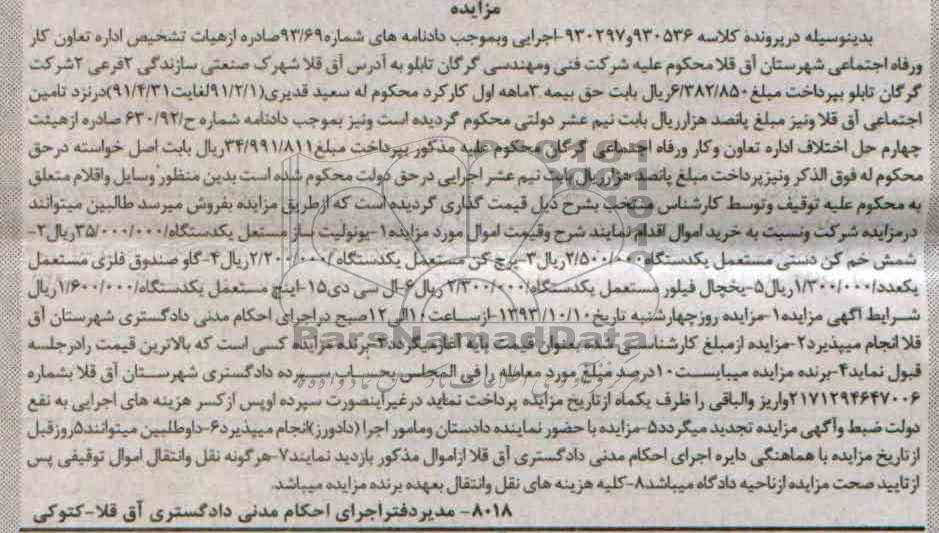 مزایده
بدینوسیله درپرونده کلاسه ۹۳۰۵۳۶و۹۳۰۲۹۷-اجرایی وبموجب دادنامه های شماره۹۳/۶۹صادره ازهیات تشخیص اداره تعاون کار
ورفاه اجتماعی شهرستان آق قلامحکوم علیه شرکت فنی ومهندسی گرگان تابلو به آدرس آق قلا شهرک صنعتی سازندگی ۲فرعی ۲شرکت
گرگان تابلو بپرداخت مبلغ۶/۳۸۲/۸۵۰ریال بابت حق بیمه ۳ماهه اول کارکرد محکوم له سعید قدیری(۹۱/۲/۱لغایت۹۱/۴/۳۱)درنزد تامین
اجتماعی آق قلا ونیز مبلغ پانصد هزارریال بابت نیم عشر دولتی محکوم گردیده است ونیز بموجب دادنامه شماره ح/۶۳۰/۹۲ صادره ازهیئت
چهارم حل اختلاف اداره تعاون وکار ورفاه اجتماعی گرگان محکوم علیه مذکور بپرداخت مبلغ۳۴/۹۹۱/۸۱۱ریال بابت اصل خواسته درحق
محکوم له فوق الذکر ونیزپرداخت مبلغ پانصد هزارریال بابت نیم عشر اجرایی درحق دولت محکوم شده است بدین منظور وسایل واقلام متعلق
به محکوم علیه توقیف وتوسط کارشناس منتخب بشرح ذیل قیمت گذاری گردیده است که ازطریق مزایده بفروش میرسد طالبین میتوانند
درمزایده شرکت ونسبت به خرید اموال اقدام نمایند شرح وقیمت اموال مورد مزایده۱-یونولیت ساز مستعل یکدستگاه/۳۵/۰۰۰/۰۰۰ریال۲-
شمش خم کن دستی مستعمل یکدستگاه۲/۵۰۰/۰۰۰ریال۳-پرچ کن مستعمل یکدستگاه/۲/۲۰۰/۰۰۰ریال۴-گاو صندوق فلزی مستعمل
یکعدد/۱/۳۰۰/۰۰۰ریال۵-یخچال فیلور مستعمل یکدستگاه/۲/۳۰۰/۰۰۰ریال۶-ال سی دی۱۵-اینچ مستعمل یکدستگاه/۱/۶۰۰/۰۰۰ریال
شرایط اگهی مزایده۱-مزایده روزچهارشنبه تاریخ۱۳۹۳/۱۰/۱۰-ازساعت۱۰الی۱۲صبح دراجرای احکام مدنی دادگستری شهرستان آق
قلا انجام میپذیرد۲-مزایده ازمبلغ کارشناسی شده بعنوان قیمت پایه آغازمیگردد۳-برنده مزایده کسی است که بالاترین قیمت رادرجلسه
قبول نماید۴-برنده مزایده میبایست۱۰درصد مبلغ مورد معامله را فی المجلس بحساب سپرده دادگستری شهرستان آق قلا بشماره
۲۱۷۱۲۹۴۶۴۷۰۰۶واریز والباقی را ظرف یکماه ازتاریخ مزایده پرداخت نماید درغیراینصورت سپرده اوپس ازکسر هزینه های اجرایی به نفع
دولت ضبط وآگهی مزایده تجدید میگردد۵-مزایده با حضور نماینده دادستان ومامور اجرا (دادورز)انجام میپذیرد۶-داوطلبین میتوانند۵روزقبل
ازتاریخ مزایده با هماهنگی دایره اجرای احکام مدنی دادگستری آق قلا ازاموال مذکور بازدید نمایند۷-هرگونه نقل وانتقال اموال توقیفی پس
ازتایید صحت مزایده ازناحیه دادگاه میباشد۸-کلیه هزینه های نقل وانتقال بعهده برنده مزایده میباشد.
۸۰۱۸- مدیردفتراجرای احکام مدنی دادگستری آق قلا-کتوکی
ParsNamadData